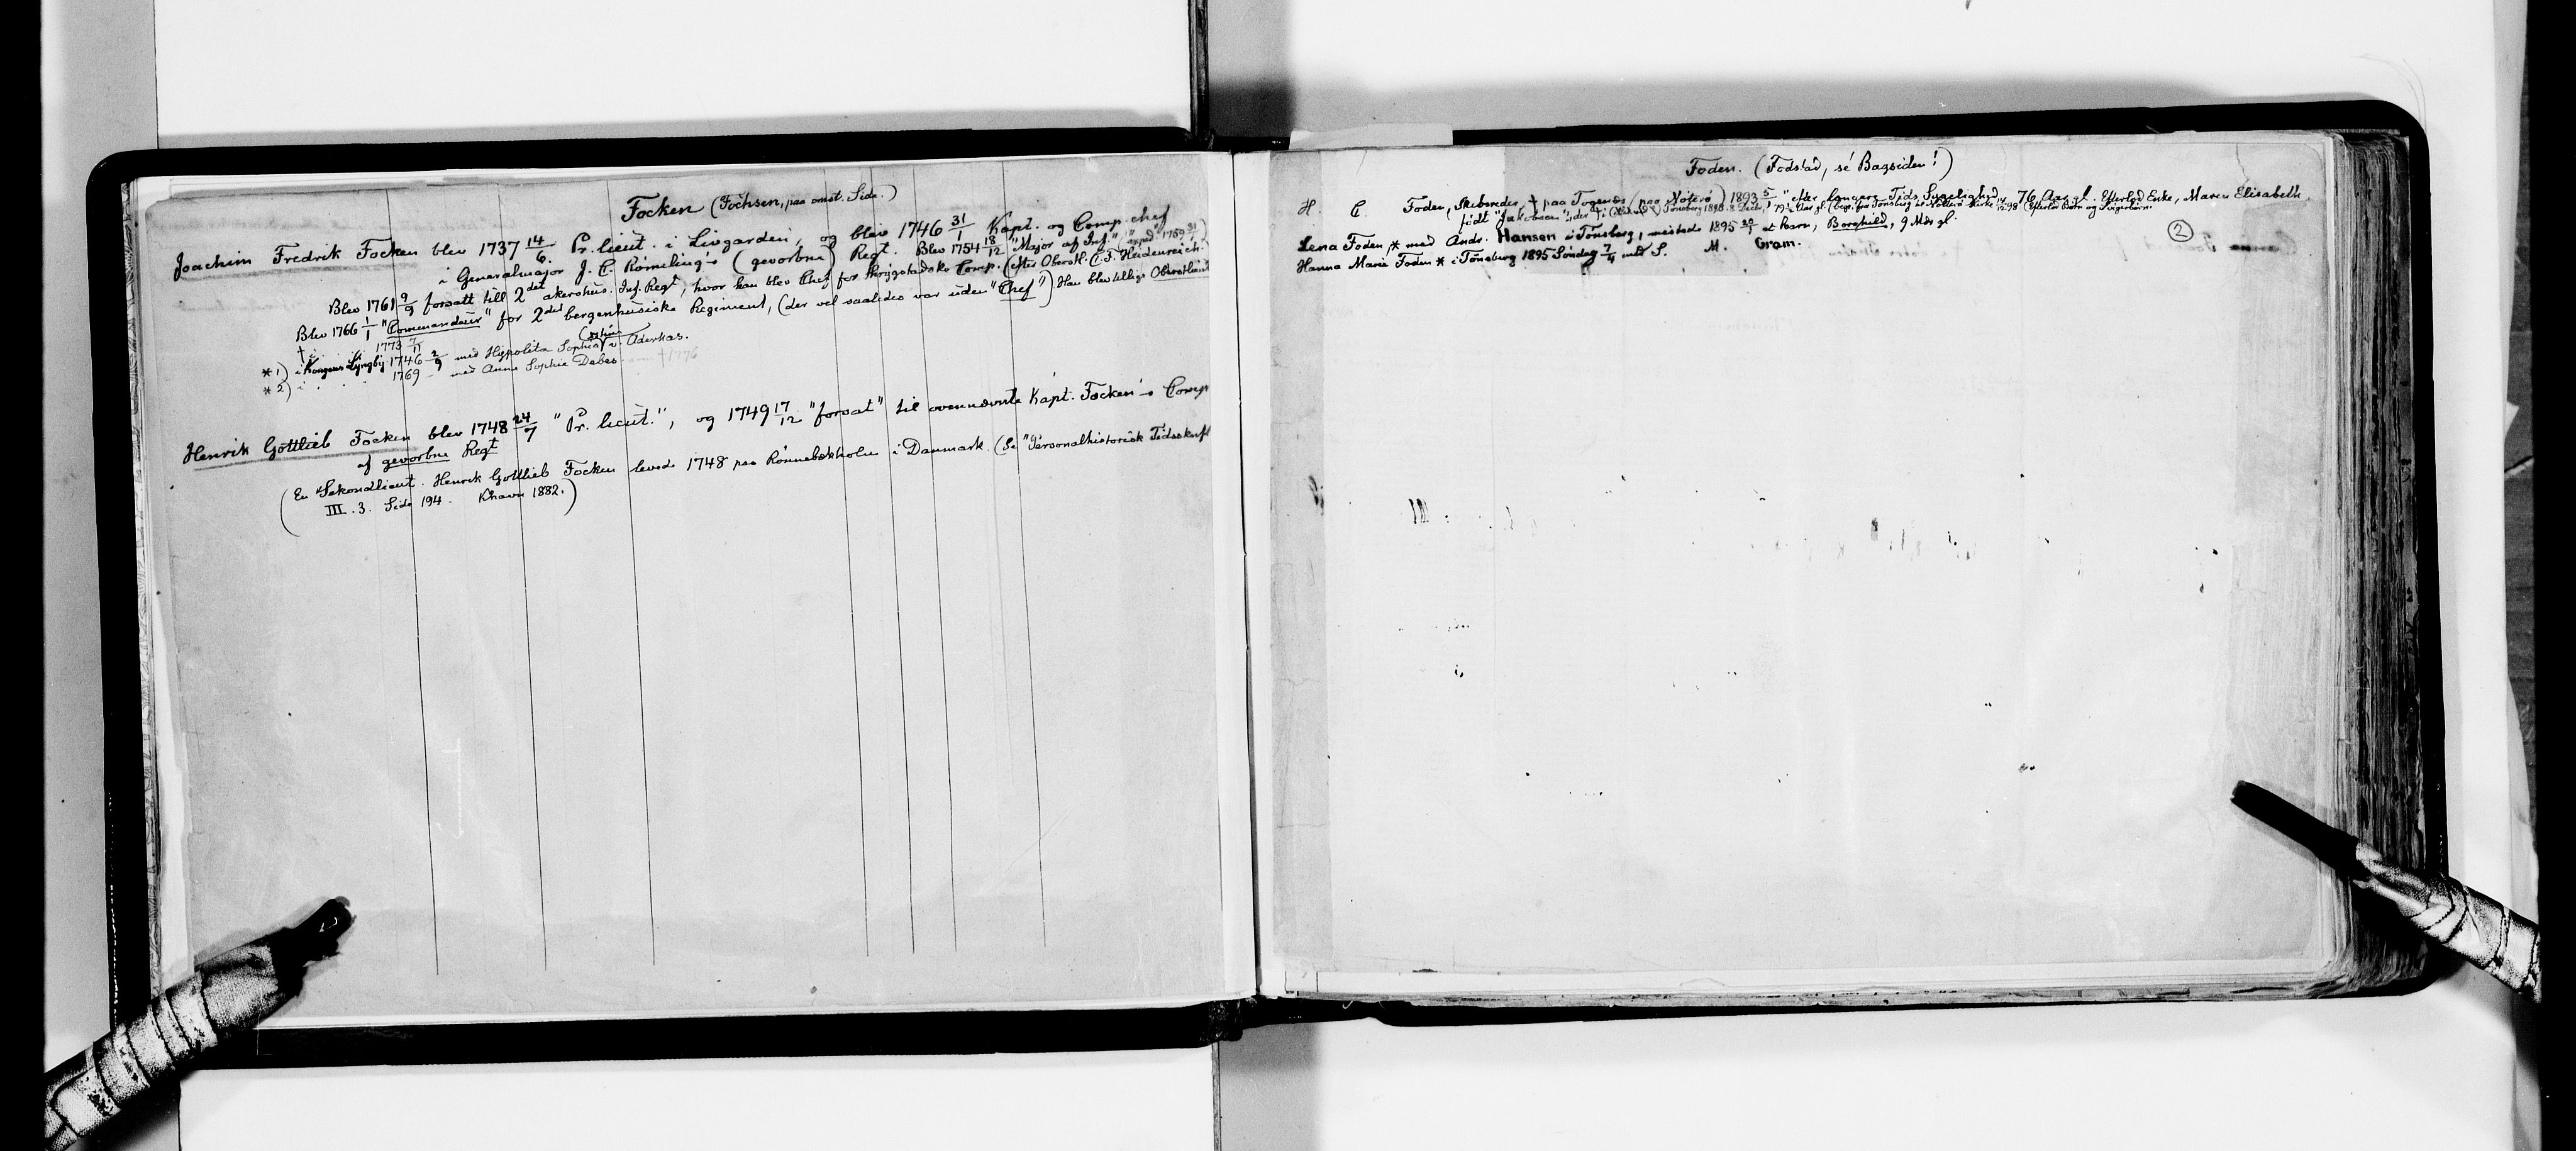 Focken (Fochsen, paa omst. Side.)
Joachim Fredrik Focken blev 1737 14/6 Pr. lieut. i Livgarden, og blev 1746 31/1 Kapt. og Comp. chef
i Generalmajor J. C. Römeling's (gevorbne) Regt. Blev 1754 18/12 "Major af Inf."
Blev 1761 9/9 forsatt till 2det akershus. Inf. Regt, hvor han blev Chef for Comp. (efter Oberstl. C. F. Heidenreich.
Blev 1766 1/1 "Commandeur" for 2det bergenhusiske Regiment, (der vel saaledes var uden "Chef") Han blev tillige Oberstlieut
† 1773 7/11
*1) i Kongens Lyngby 1746 2/9 med Hypolita Sophia v. Aderkas.
*2) i 1769 med Anna Sophie Debes † 1776
Henrik Gottlieb Focken blev 1748 24/7 "Pr. lieut.", og 1749 17/12 "forsat" til ovennævnte Kapt. Focken's Comp
af gevorbne Regt
(En Sekondlieut. Henrik Gottlieb Focken levede 1748 paa Rönnebekholm i Danmark. (Se "Personalhistorisk Tidsskrift
III. 3. Side 194. Khavn 1882.)
Foden. (Fodstad, sé Bagsiden!)
H. C. Foden, Skibsreder, † paa Togenæs (paa Nöterö) 1893 5/1 "efter længere Tids Sygelighed, 76 Aar gl. Efterlod Enke, Maren Elisabeth,
födt "Jakobsen", der † i Tönsberg 1898
Lena Foden * med Andr. Hansen i Tönsberg, mistede 1895 et Barn, Borghild, 9 Mdr gl.
Hanna Marie Foden * i Tönsberg 1895 Söndag 7/4 med S. M. Gram.
2